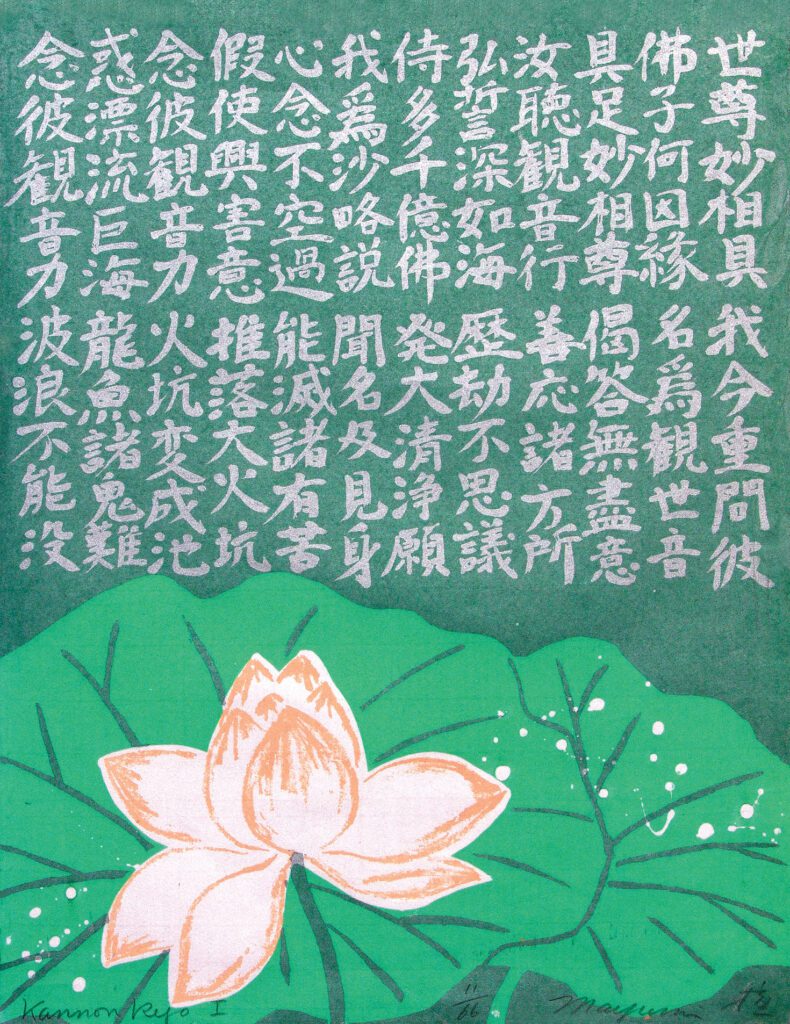 世尊妙相具 我今重問彼
佛子何因緣 名爲観世音
具足妙相尊 偈答無盡意
汝聴観音行 善応諸方所
弘誓深如海 歴劫不思議
侍多千億佛 発大清浄願
我爲沙略説 聞名及見身
心念不空過 能滅諸有苦
假使興害意 推落大火坑
念彼観音力 火坑変成池
惑漂流巨海 龍魚諸鬼難
念彼観音力 波浪不能没
Kannon Kyo I 11/66 Mayumi